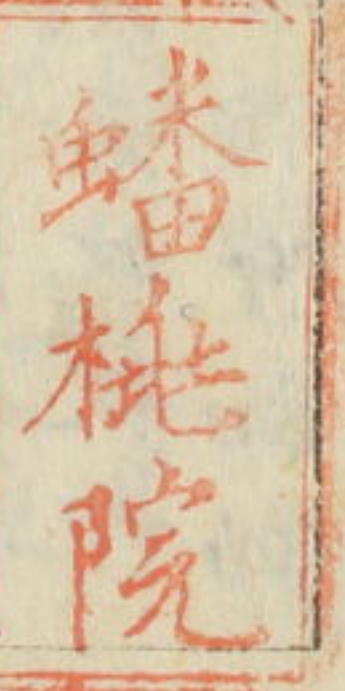 蟠桃院